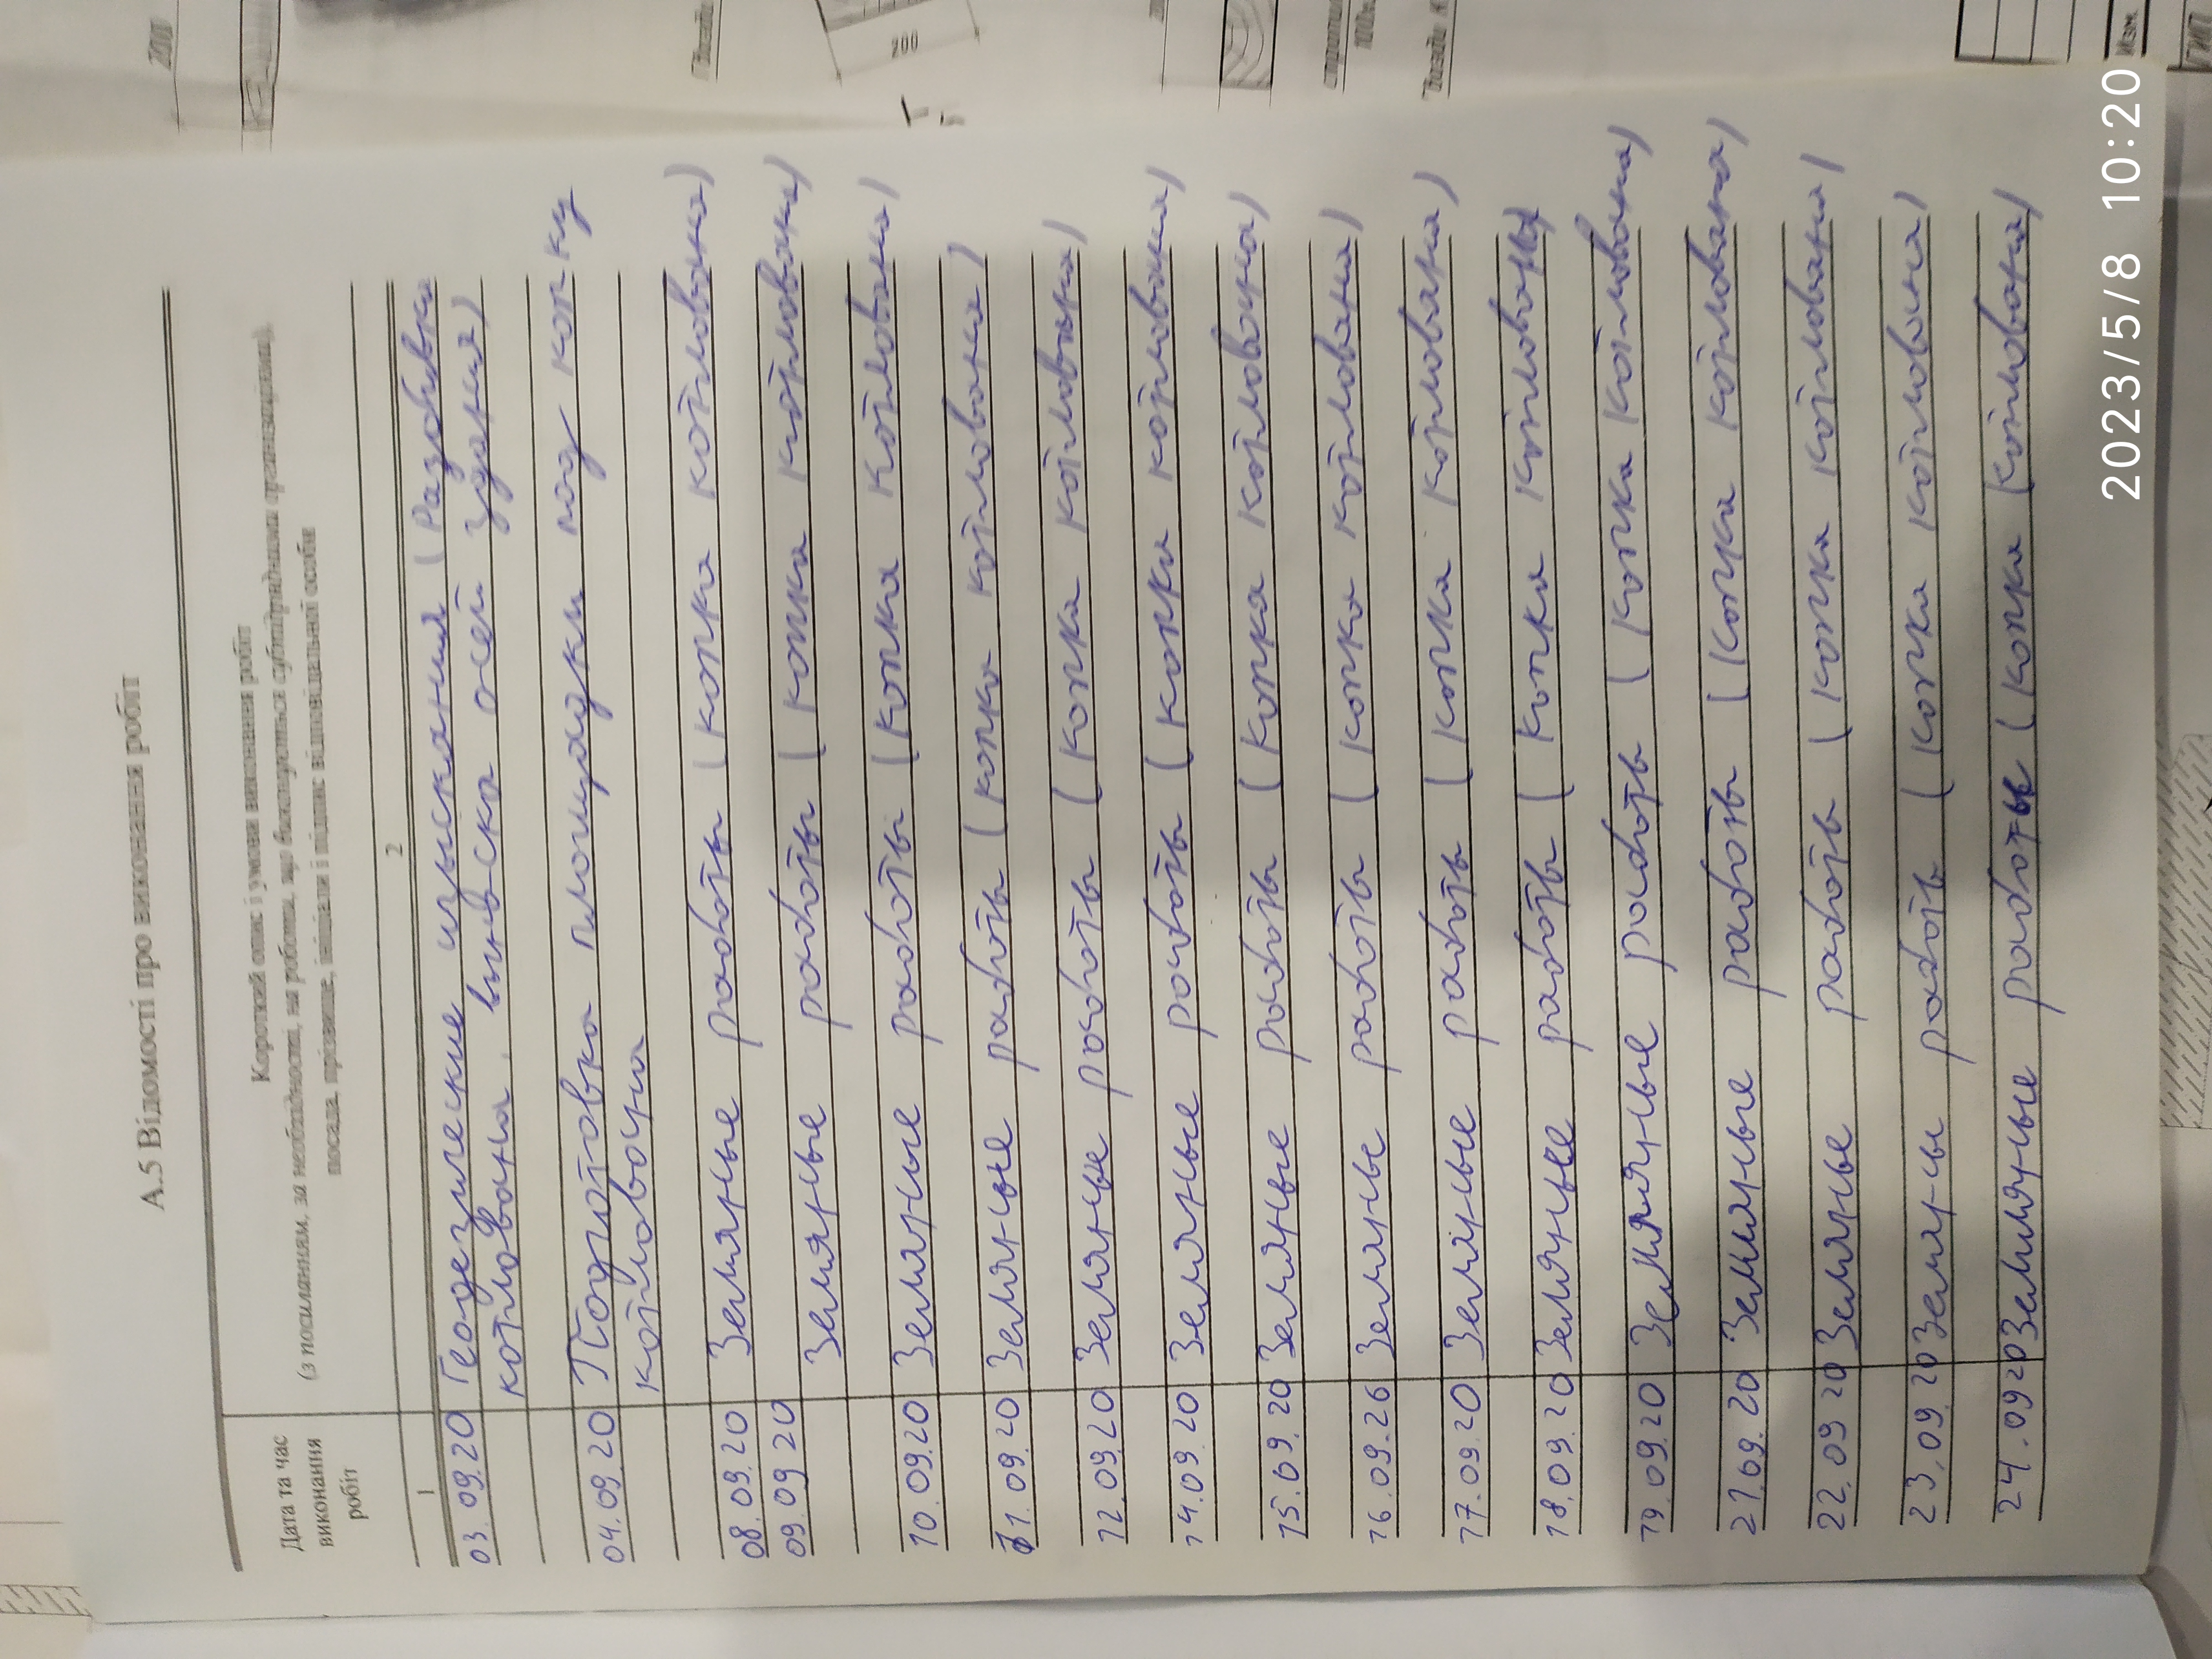 А.5 Відомості про виконання робіт
Дата та час
виконання
робіт
Короткий опис і умови виконання робіт
(з посиланням, за необхідності, на роботи, що виконуються субпідрядними організаціями),
посада, прізвище, ініціали і підпис відповідальної особи
1 2
03.09.20 Геодезические изыскания (Разбивка
котлована, выноска осей здания)
04.09.20 Подготовка площадки под копку
котлована
08.09.20 Земляные работы (копка котлована)
09.09 20 Земляные работы (копка котлована)
10.09.20 Земляные работы (копка котлована)
11.09.20 Земляные работы (копка котлована)
12.09.20 Земляные работы (копка котлована)
14.09.20 Земляные работы (копка котлована)
15.09.20 Земляные работы (копка котлована)
16.09.20 Земляные работы (копка котлована)
17.09.20 Земляные работы (копка котлована)
18.09.20 Земляные работы (копка котлована)
19.09.20 Земляные работы (копка котлована)
21.09.20 Земляные работы (копка котлована)
22.09 20 Земляные работы (копка котлована)
23.09.20 Земляны работы (копка котлована)
24.09 20 Земляные работы (копка котлована)
200
200
Изм.
ГИП
2023/5/8 10:20